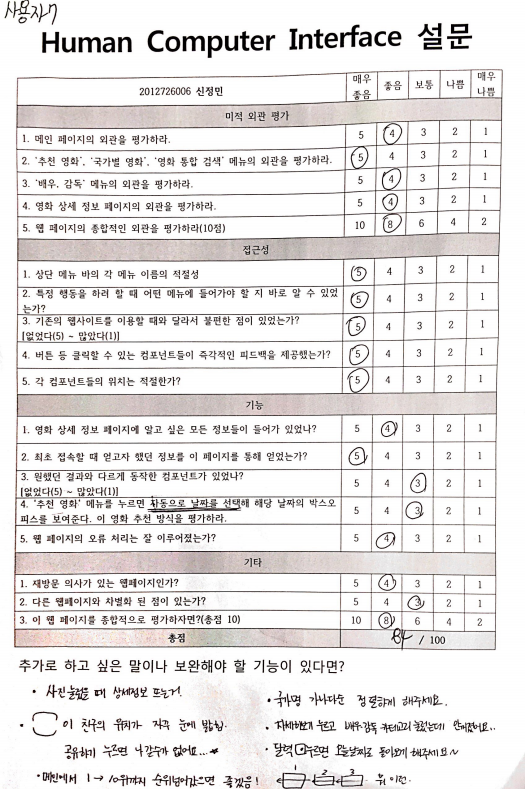 사용자7
Human Computer Interface 설문
2012726006 신정민 매우 좋음 좋음 보통 나쁨 매우 나쁨
미적 외관 평가
1. 메인 페이지의 외관을 평가하라. 5 4 3 2 1
2. '추천 영화', '국가별 영화', '영화 통합 검색' 메뉴의 외관을 평가하라. 5 4 3 2 1
3. '배우, 감독' 메뉴의 외관을 평가하라. 5 4 3 2 1
4. 영화 상세 정보 페이지의 외관을 평가하라. 5 4 3 2 1
5. 웹 페이지의 종합적인 외관을 평가하라(10점) 10 8 6 4 2
접근성
1. 상단 메뉴 바의 각 메뉴 이름의 적절성 5 4 3 2 1
2. 특정 행동을 하려 할 때 어떤 메뉴에 들어가야 할 지 바로 알 수 있었
는가? 5 4 3 2 1
3. 기존의 웹사이트를 이용할 때와 달라서 불편한 점이 있었는가?
[없었다(5) ~ 많았다(1)] 5 4 3 2 1
4. 버튼 등 클릭할 수 있는 컴포넌트들이 즉각적인 피드백을 제공했는가? 5 4 3 2 1
5. 각 컴포넌트들의 위치는 적절한가? 5 4 3 2 1
기능
1. 영화 상세 정보 페이지에 알고 싶은 모든 정보들이 들어가 있었나? 5 4 3 2 1
2. 최초 접속할 때 얻고자 했던 정보를 이 페이지를 통해 얻었는가? 5 4 3 2 1
3. 원했던 결과와 다르게 동작한 컴포넌트가 있었나?
[없었다(5) ~ 많았다(1)] 5 4 3 2 1
4. '추천 영화' 메뉴를 누르면 자동으로 날짜를 선택해 해당 날짜의 박스오
피스를 보여준다. 이 영화 추천 방식을 평가하라. 5 4 3 2 1
5. 웹 페이지의 오류 처리는 잘 이루어졌는가? 5 4 3 2 1
기타
1. 재방문 의사가 있는 웹페이지인가? 5 4 3 2 1
2. 다른 웹페이지와 차별화 된 점이 있는가? 5 4 3 2 1
3. 이 웹 페이지를 종합적으로 평가하자면?(총점 10) 10 8 6 4 2
총점 84 / 100
추가로 하고 싶은 말이나 보완해야 할 기능이 있다면?
• 사진 눌렀을 때 상세정보 뜨는거.
• 국가명 가나다순 정렬하게 해주세요.
• 이 친구의 위치가 자꾸 눈에 밟힘.
공유하기 누르면 나갈수가 없어요...
• 자세히보기 누르고 배우·감독 카테고리 눌렀는데 안꺼졌어요..
• 달력 누르면 오늘날짜로 돌아오게 해주세요~
• 메인에서 1 → 10위까지 순위넘어갔으면 좋겠음!
1 2 3 뭐 이런.